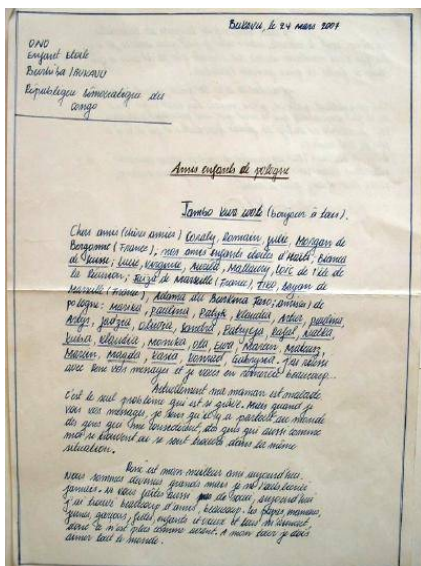 Bukavu, le 24 mars 2007
OVO
Enfant Etoile
Burhiba / BUKAVU
République Démocratique du
Congo
Amis enfants de pologne
Jambo kwa wote (bonjour à tous).
Chers amis (chères amies) Coraly, Romain, Julie, Morgan de
Borgonne (France); mes amis enfants étoiles d'Haïti; Bianca
de Suisse; Lucie, Mallaury, Loïc de l'île de
la Réunion; de Marseille (France) Théo, Bryan de
Marseille (France), Adama du Burkina Faso; ami(es) de
pologne: Marika, paulina, patryk, klaudia, Artur, paulina,
justyna, oliwia, sandra, patrycja, Rafal,
klaudia, monika, ola, Ewa, Marcin, Mateusz,
Marcin, magda, kasia, konrad, gabrysia. J'ai réussi
avec vos messages et je vous en remercie beaucoup.
Actuellement ma maman est malade
c'est le seul problème qui est si grave. Mais quand je
vois vos messages, je sens qu'il y a partout au monde
des gens qui me considèrent, des gens qui aussi comme
moi se trouvent ou se sont trouvés dans la même
situation.
est mon meilleur ami aujourd'hui.
Nous sommes devenus grands amis je ne l'oublierai
jamais. Si vous faites aussi de vous, aujourd'hui
j'ai trouvé beaucoup d'amis, beaucoup. les papas, mamans,
jeunes, garçons, filles, enfants et vieux et tous
donc ce n'est plus comme avant. A mon tour je dois
aimer tout le monde.